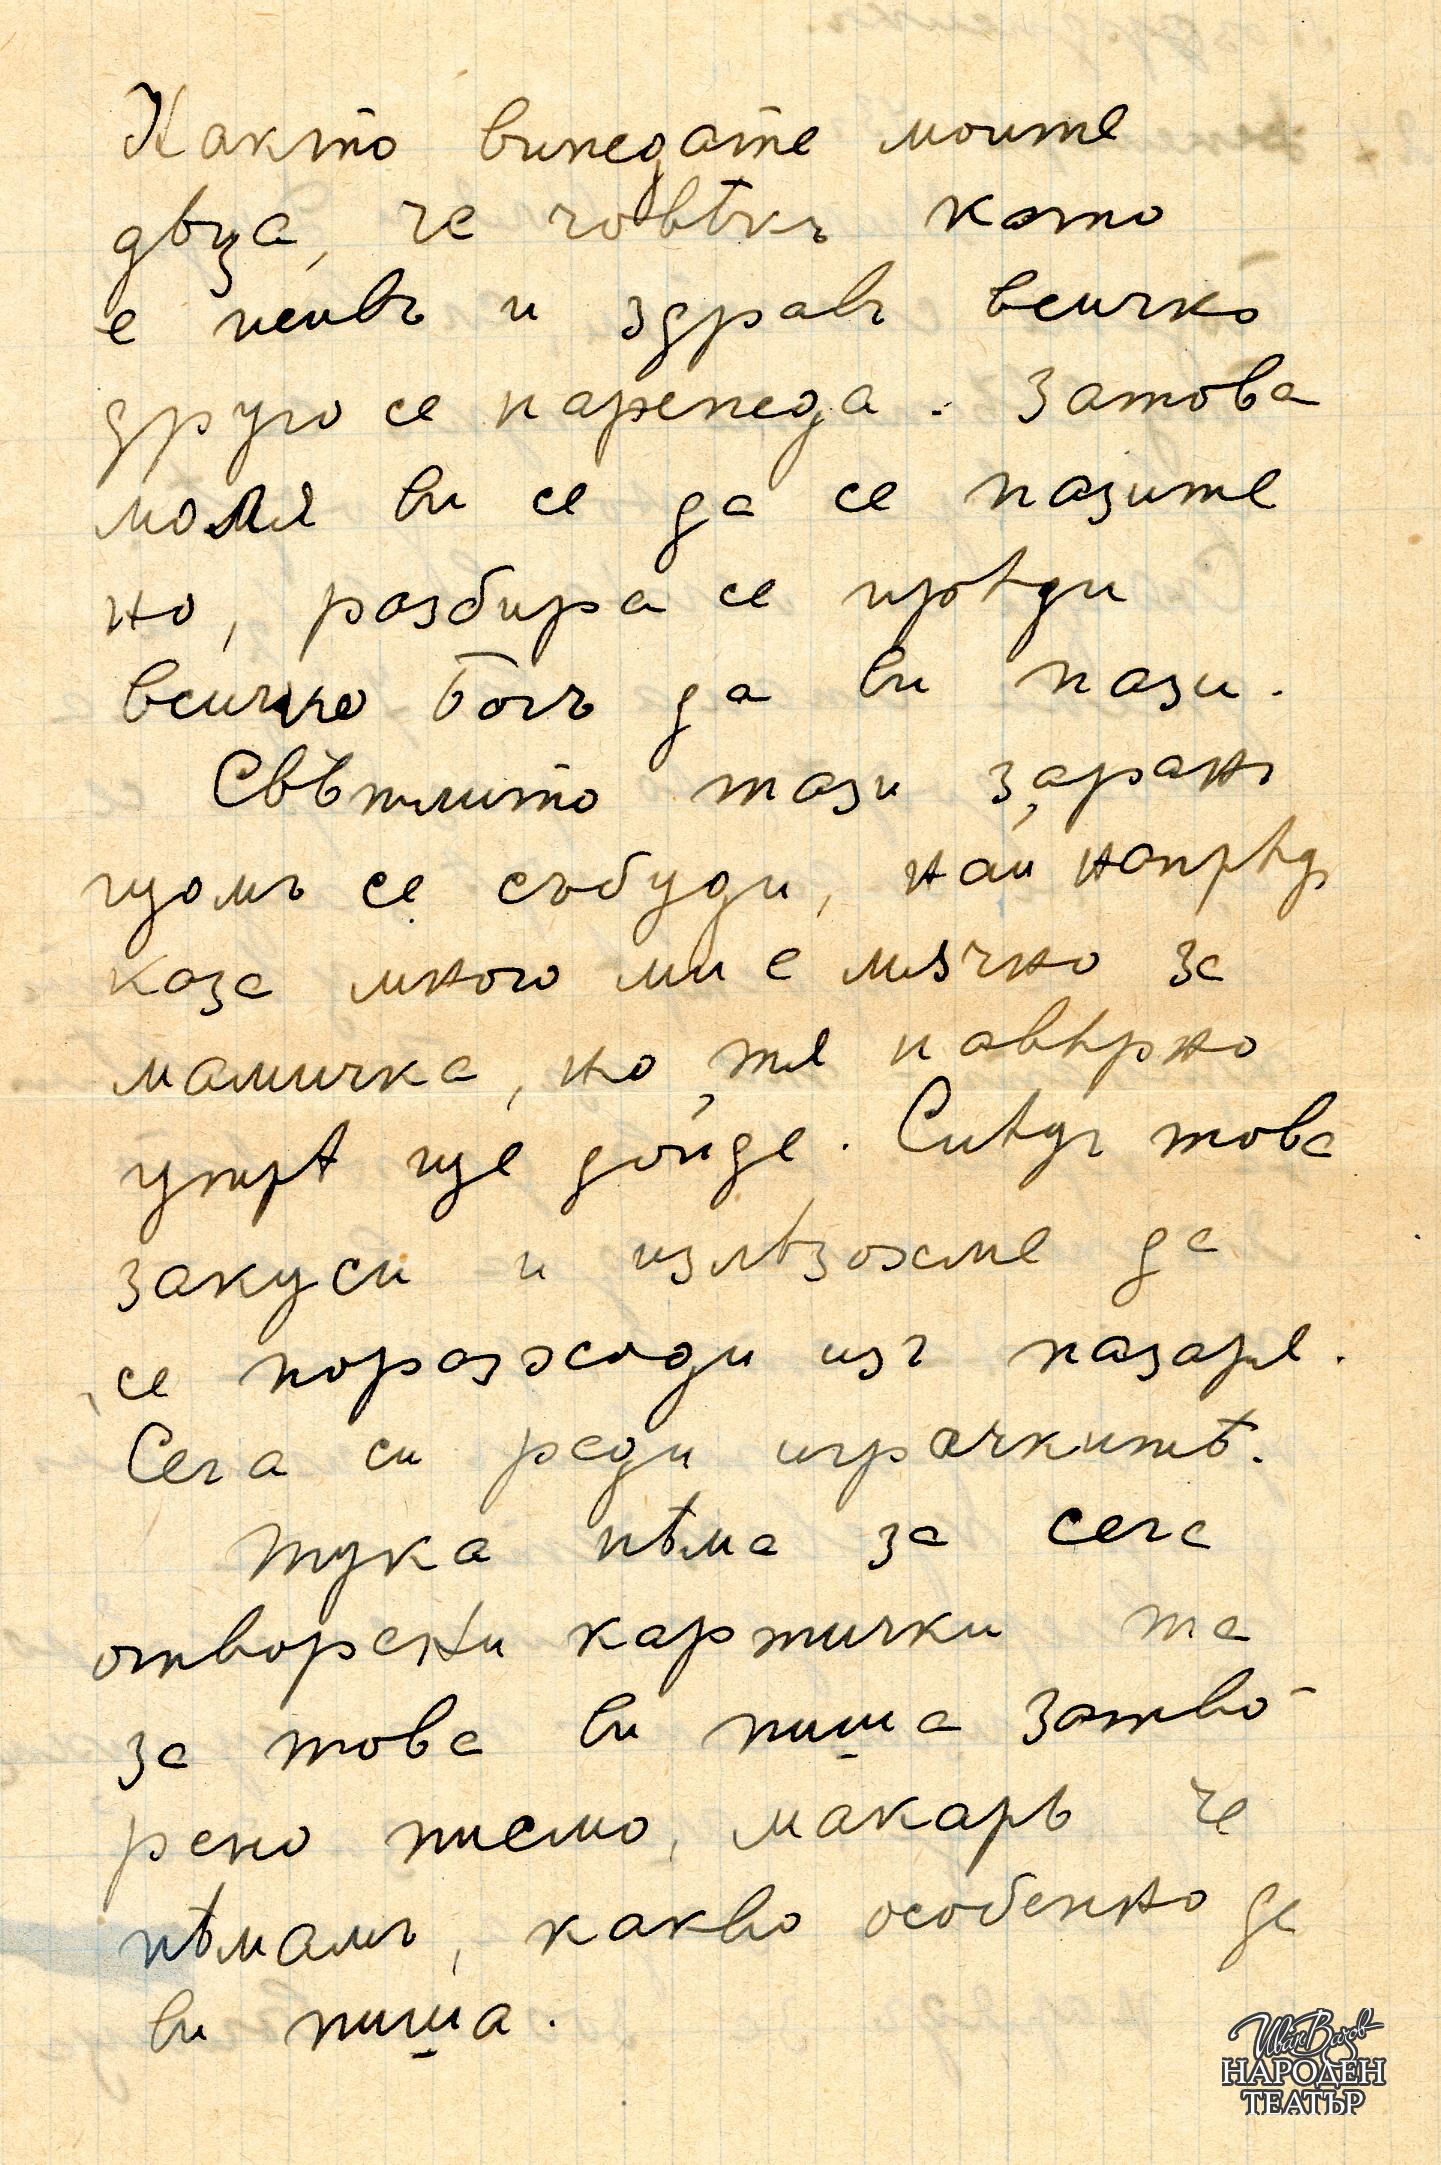 Както виждате моите
двуа, че човѣкъ като
е живъ и здравъ всичко
друго се нарежда. Затова
моля ви се да се пазите
но, разбира се прѣди
всичко Богъ да ви пази.
Свѣтлито тази зарань
щомъ се събуди, най напрѣдъ
каза много ми е мячно за
мамичка, но тя навѣрно
утрѣ ще дойде. Слѣдъ това
закуси и излѣзохме да
се поразходи изъ пазаря.
Сега си реди играчкитѣ.
Тука нѣма за сега
отворени картички та
за това ви пиша затво-
рено писмо, макаръ че
нѣмамъ, какво особенно да
ви пиша.
Иван Вазов
НАРОДЕН
ТЕАТЪР